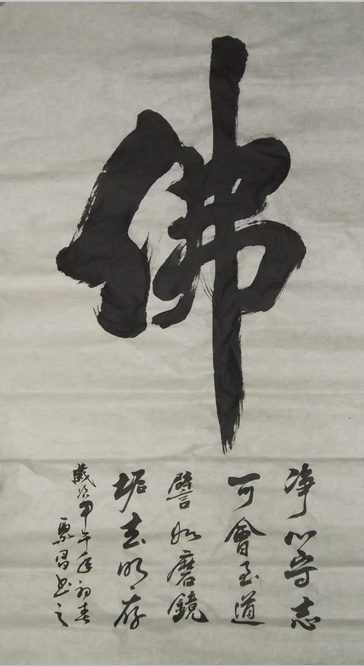 佛
净心守志
可會至道
譬如磨鏡
垢去明存
歲次甲午年初春
昌书之